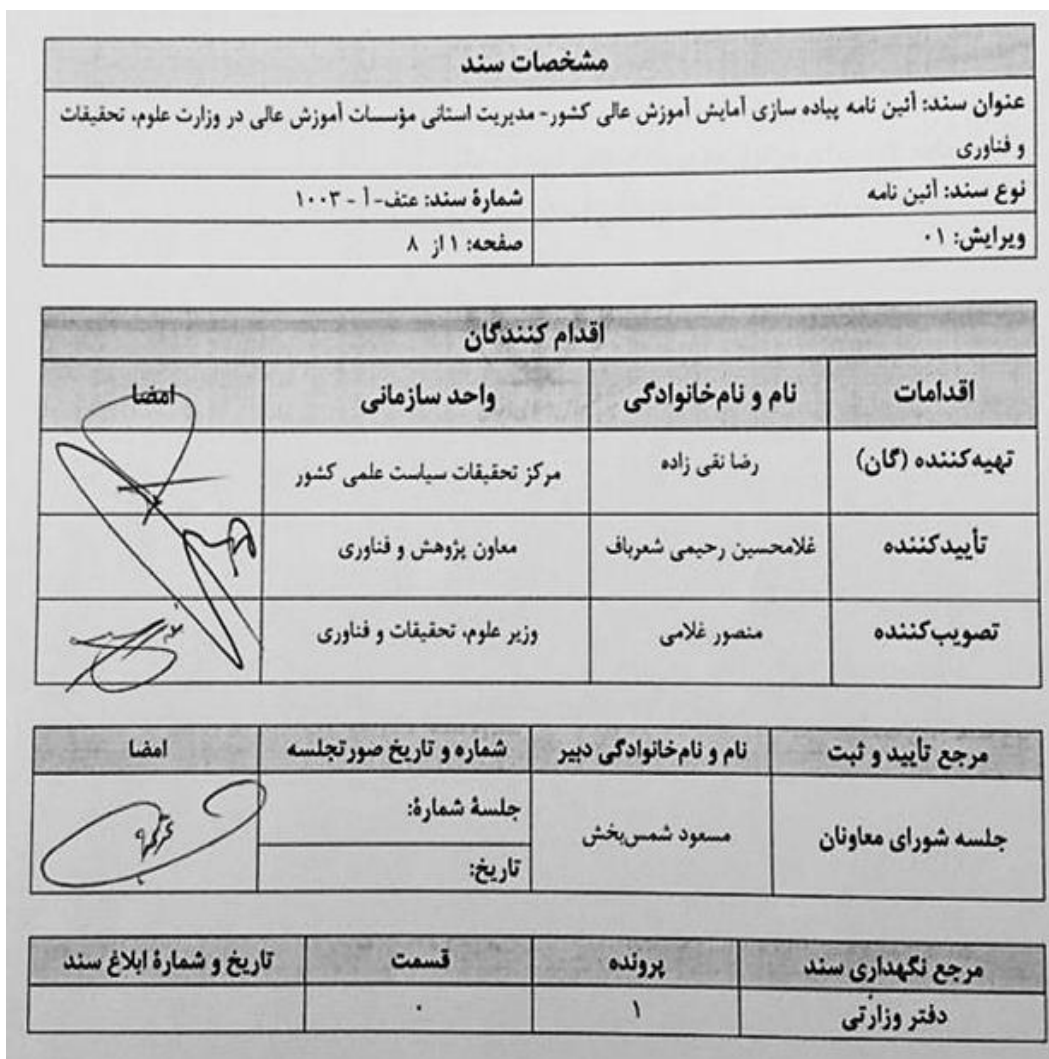 مشخصات سند
عنوان سند: آئین نامه پیاده سازی آمایش آموزش عالی کشور- مدیریت استانی مؤسسات آموزش عالی در وزارت علوم، تحقیقات
و فناوری
نوع سند: آئین نامه
شمارۀ سند: عتف- آ - ۱۰۰۳
ویرایش: ۰۱
صفحه: ۱ از ۸
اقدام کنندگان
اقدامات نام و نام‌خانوادگی واحد سازمانی امضا
تهیه‌کننده (گان) رضا نقی زاده مرکز تحقیقات سیاست علمی کشور
تأییدکننده غلامحسین رحیمی شعرباف معاون پژوهش و فناوری
تصویب‌کننده منصور غلامی وزیر علوم، تحقیقات و فناوری
مرجع تأیید و ثبت نام و نام‌خانوادگی دبیر شماره و تاریخ صورتجلسه امضا
جلسه شورای معاونان مسعود شمس‌بخش جلسۀ شمارۀ:
تاریخ:
مرجع نگهداری سند پرونده قسمت تاریخ و شمارۀ ابلاغ سند
دفتر وزارتی ۱ ۰